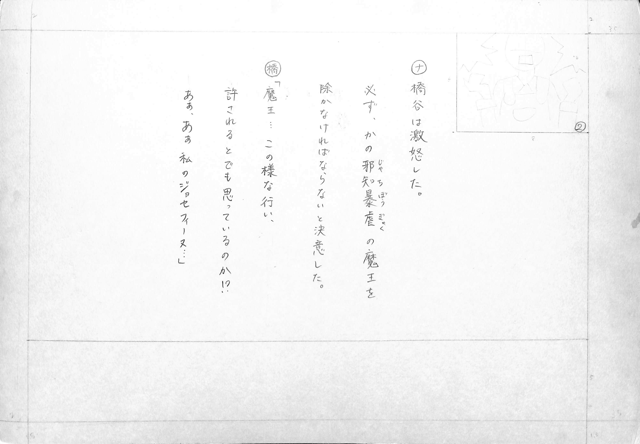 ナ 橘谷は激怒した。
必ず、かの邪知暴虐の魔王を
じゃちぼうぎゃく
除かなければならないと決意した。
橘「魔王… この様な行い、
許されるとでも思っているのか!?
あぁ、あぁ 私のジョセフィーヌ…」
②